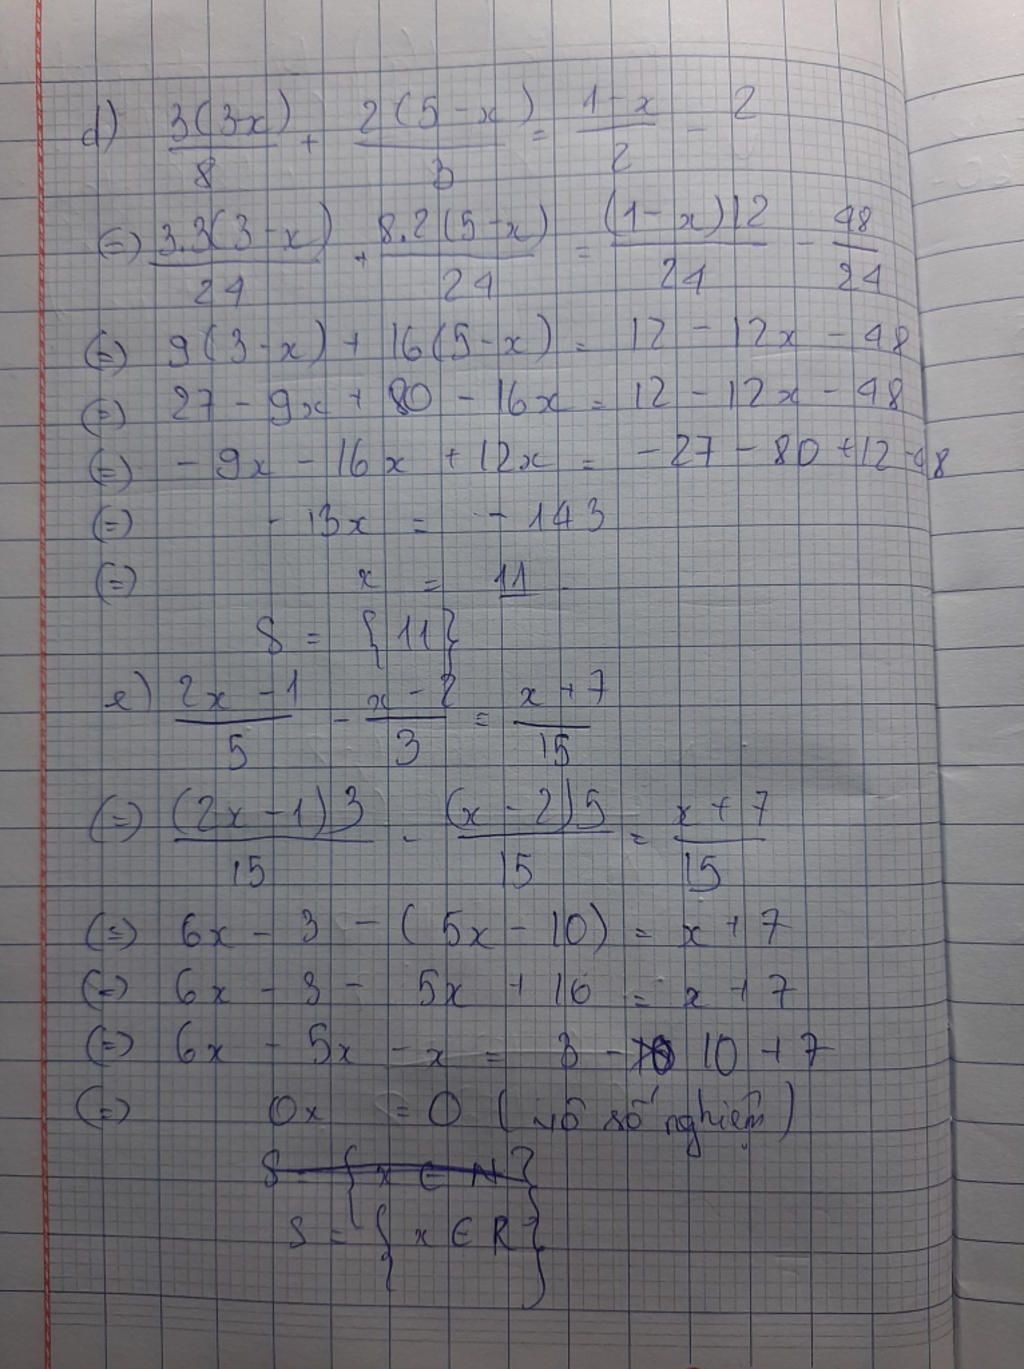 d) 3(3-x)/8 + 2(5-x)/3 = 1-x/2 - 2
(=) 3.3(3-x)/24 + 8.2(5-x)/24 = (1-x)12/24 - 48/24
(=) 9(3-x) + 16(5-x) = 12 - 12x - 48
(=) 27 - 9x + 80 - 16x = 12 - 12x - 48
(=) - 9x - 16x + 12x = - 27 - 80 + 12 - 48
(=) - 13x = - 143
(=) x = 11
S = {11}
e) 2x-1/5 - x-2/3 = x+7/15
(=) (2x-1)3/15 - (x-2)5/15 = x+7/15
(=) 6x - 3 - (5x - 10) = x + 7
(=) 6x - 3 - 5x + 10 = x + 7
(=) 6x - 5x - x = 3 - 10 + 7
(=) 0x = 0 (vô số nghiệm)
S = {x ∈ N}
S = {x ∈ R}